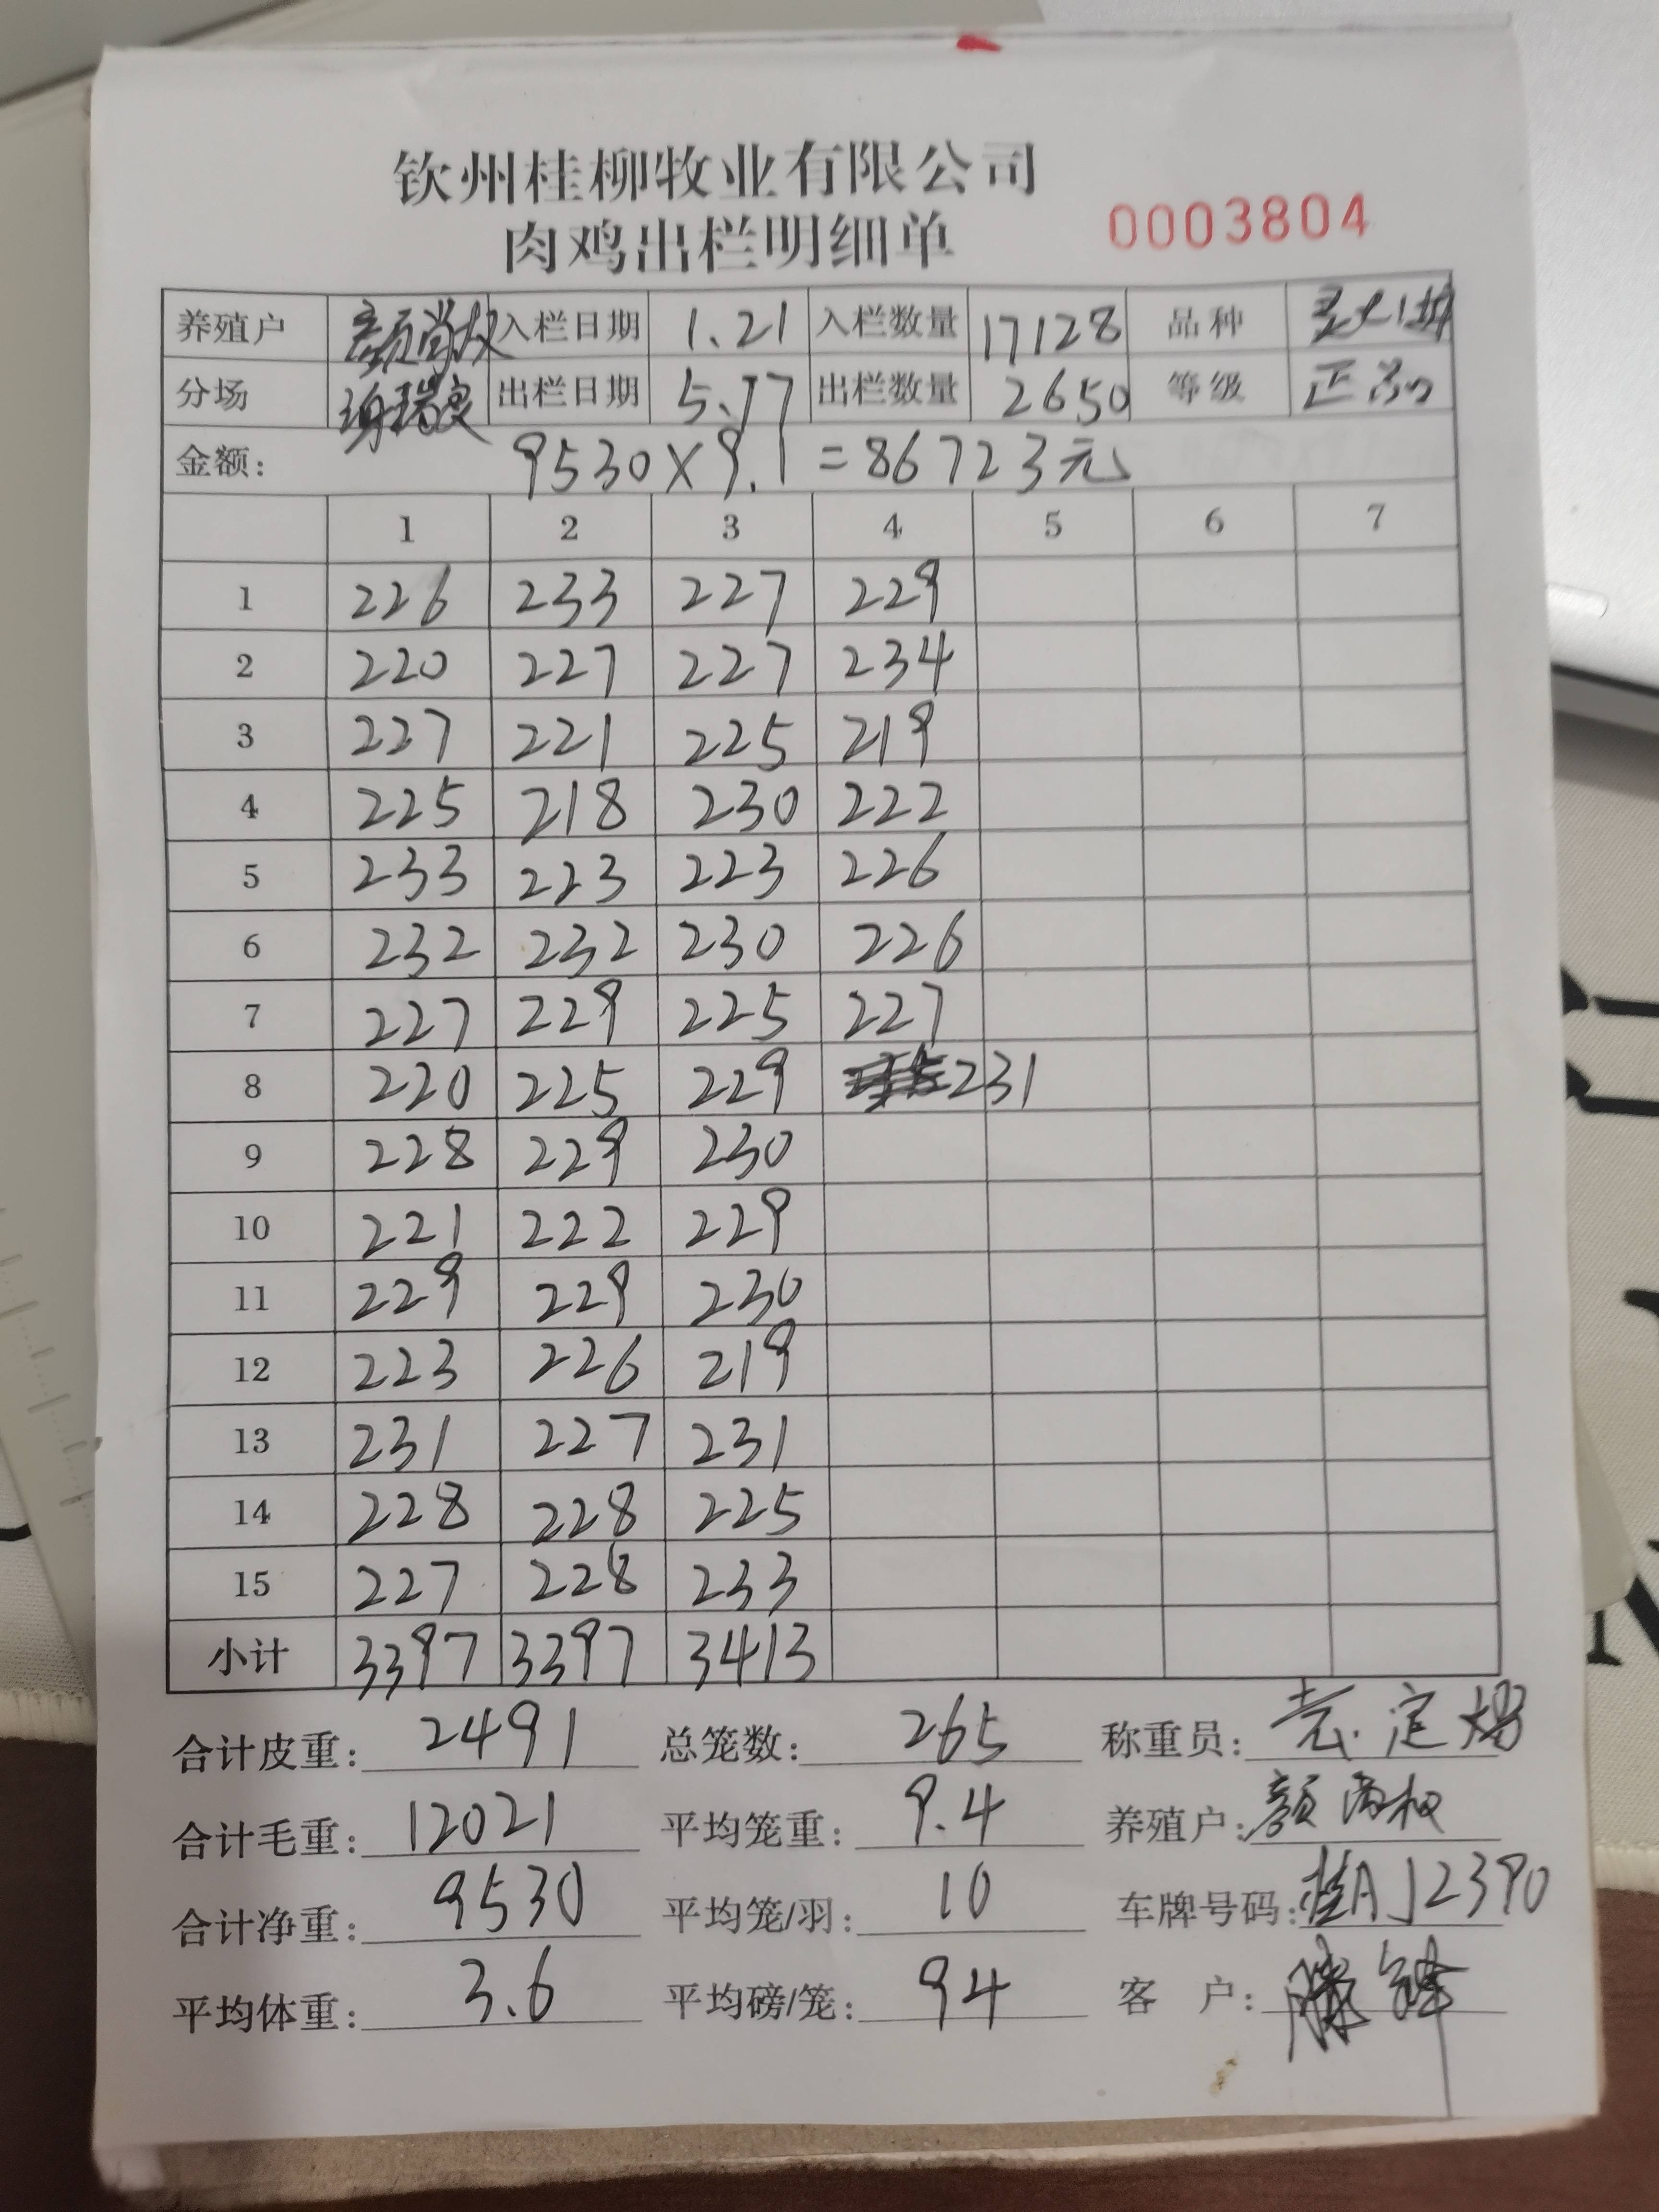 钦州桂柳牧业有限公司
肉鸡出栏明细单 0003804
养殖户 颜尚权 入栏日期 1.21 入栏数量 17128 品种
分场 出栏日期 5.17 出栏数量 2650 等级 正品
金额: 9530×9.1=86723元
1 2 3 4 5 6 7
1 226 233 227 229
2 220 227 227 234
3 227 221 225 219
4 225 218 230 222
5 233 223 223 226
6 232 232 230 226
7 227 229 225 227
8 220 225 229 231
9 228 229 230
10 221 222 229
11 229 229 230
12 223 226 219
13 231 227 231
14 228 228 225
15 227 228 233
小计 3397 3397 3413
合计皮重: 2491 总笼数: 265 称重员:
合计毛重: 12021 平均笼重: 9.4 养殖户: 颜尚权
合计净重: 9530 平均笼/羽: 10 车牌号码: 桂AJ2390
平均体重: 3.6 平均磅/笼: 94 客 户: